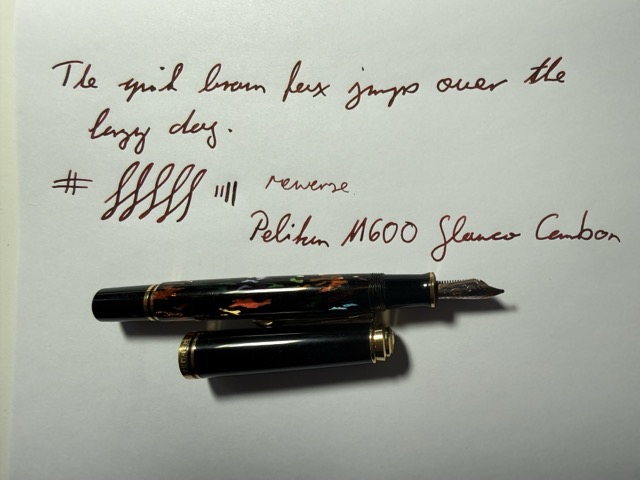 The quick brown fox jumps over the
lazy dog.
# reverse
Pelikan M600 Glauco Cambon